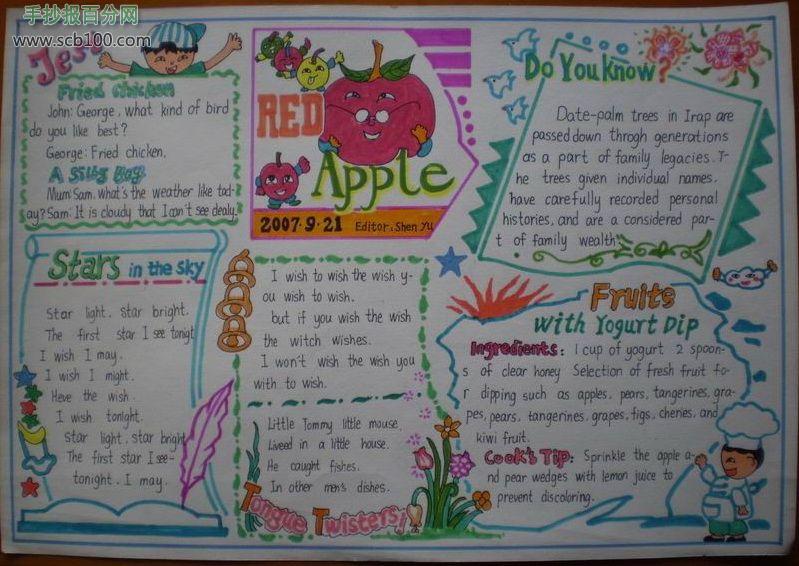 手抄报百分网
www.scb100.com
Jest
Fried Chicken
John: George, what kind of bird
do you like best?
George: Fried chicken.
A Silly Bag
Mum: Sam, what's the weather like tod-
ay? Sam: It is cloudy that I can't see dealy.
RED
Apple
2007·9·21 Editor: Shen Yu
Do You Know?
Date-palm trees in Irap are
passed down throgh generations
as a part of family legacies. T-
he trees given individual names,
have carefully recorded personal
histories, and are a considered par-
t of family wealth.
Stars in the sky
Star light, star bright,
The first star I see tonigt
I wish I may,
I wish I might.
Heve the wish
I wish tonight.
Star light, star bright
The first star I see-
tonight, I may.
I wish to wish the wish y-
ou wish to wish.
but if you wish the wish
the witch wishes.
I won't wish the wish you
with to wish.
Little Tommy little mouse,
Liveed in a little house.
He caught fishes.
In other men's dishes.
Tongue Twisters!
Fruits
with Yogurt Dip
Ingredients: 1 cup of yogurt 2 spoon-
s of clear honey Selection of fresh fruit fo-
r dipping such as apples, pears, tangerines, gra-
pes, pears, tangerines, grapes, figs, cheries, and
kiwi fruit.
Cook's Tip: Sprinkle the apple a-
nd pear wedges with lemon juice to
prevent discoloring.